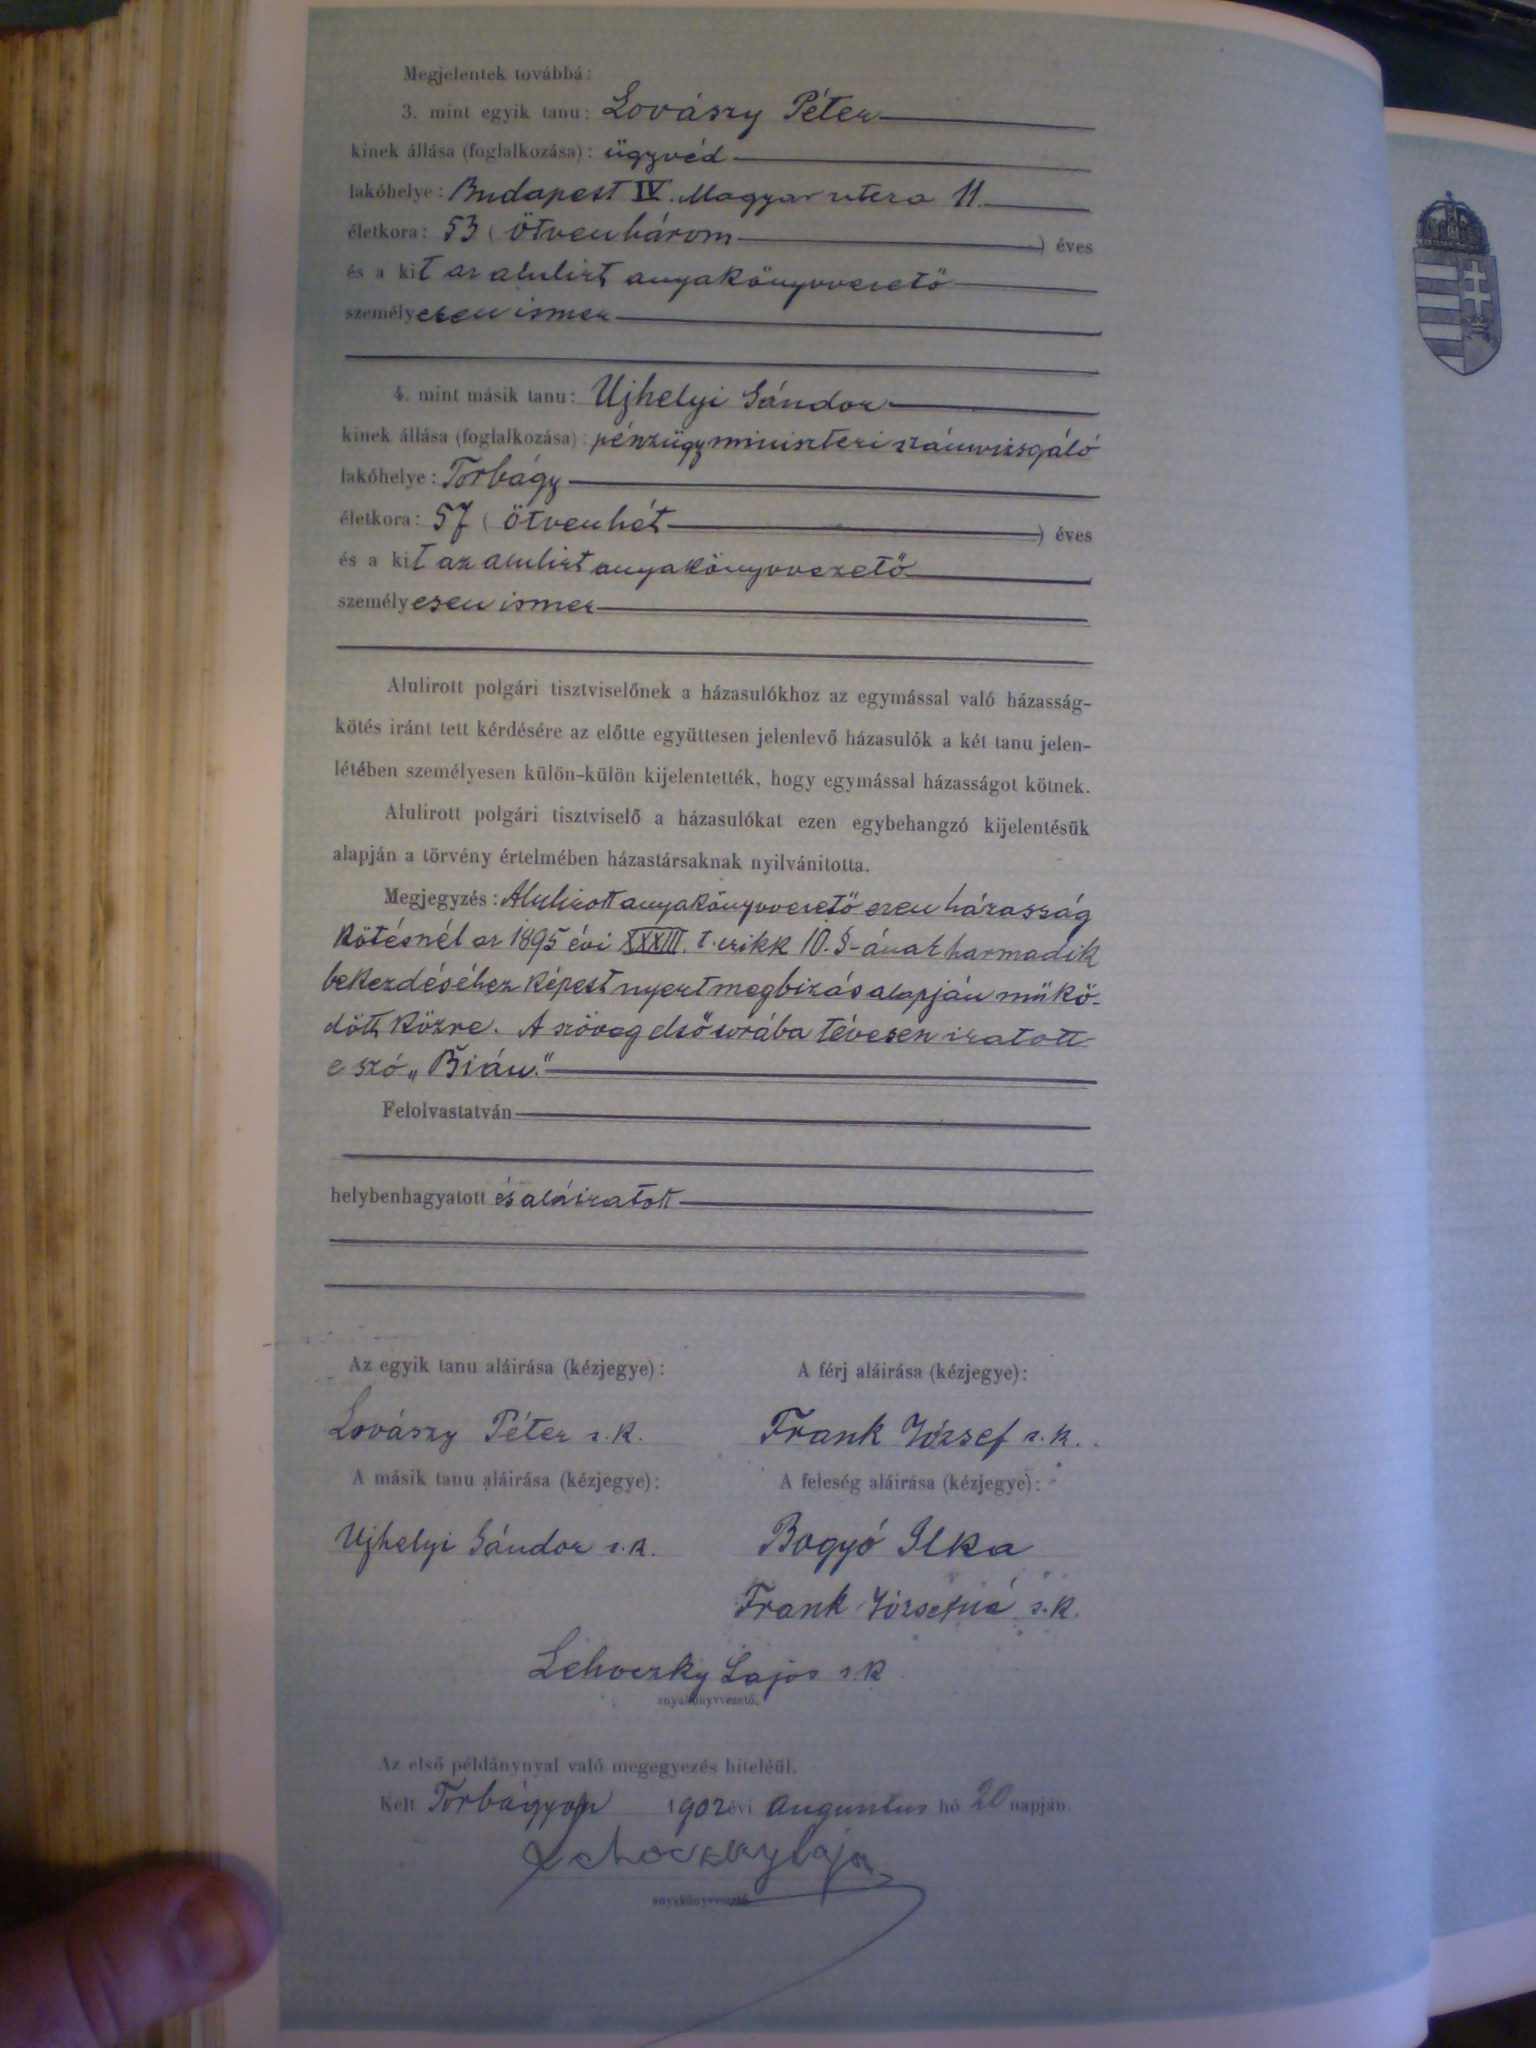 Megjelentek továbbá:
3. mint egyik tanu: Lovászy Péter
kinek állása (foglalkozása): ügyvéd
lakóhelye: Budapest IV. Magyar utcza 11.
életkora: 53 (ötvenhárom) éves
és a kit az alulirt anyakönyvvezető
személyesen ismer
4. mint másik tanu: Ujhelyi Sándor
kinek állása (foglalkozása): pénzügyminiszteri számvizsgáló
lakóhelye: Torbágy
életkora: 57 (ötvenhét) éves
és a kit az alulirt anyakönyvvezető
személyesen ismer
Alulirott polgári tisztviselőnek a házasulókhoz az egymással való házasság-
kötés iránt tett kérdésére az előtte együttesen jelenlevő házasulók a két tanu jelen-
létében személyesen külön-külön kijelentették, hogy egymással házasságot kötnek.
Alulirott polgári tisztviselő a házasulókat ezen egybehangzó kijelentésük
alapján a törvény értelmében házastársaknak nyilvánitotta.
Megjegyzés: Alulirott anyakönyvvezető ezen házasság
kötésnél az 1895 évi XXXIII. t. czikk 10. §-ának harmadik
bekezdéséhez képest nyert megbizás alapján mükö-
dött közre. A szöveg első sorába tévesen iratott
e szó „Bián."
Felolvastatván
helybenhagyatott és aláiratott
Az egyik tanu aláirása (kézjegye): A férj aláirása (kézjegye):
Lovászy Péter s. k. Frank József s. k.
A másik tanu aláirása (kézjegye): A feleség aláirása (kézjegye):
Ujhelyi Sándor s. k. Bogyó Ilka
Frank Józsefné s. k.
Lehoczky Lajos s k
anyakönyvvezető.
Az első példánynyal való megegyezés hiteléül.
Kelt Torbágyon 1902 évi Augusztus hó 20 napján.
Lehoczky Lajos
anyakönyvvezető